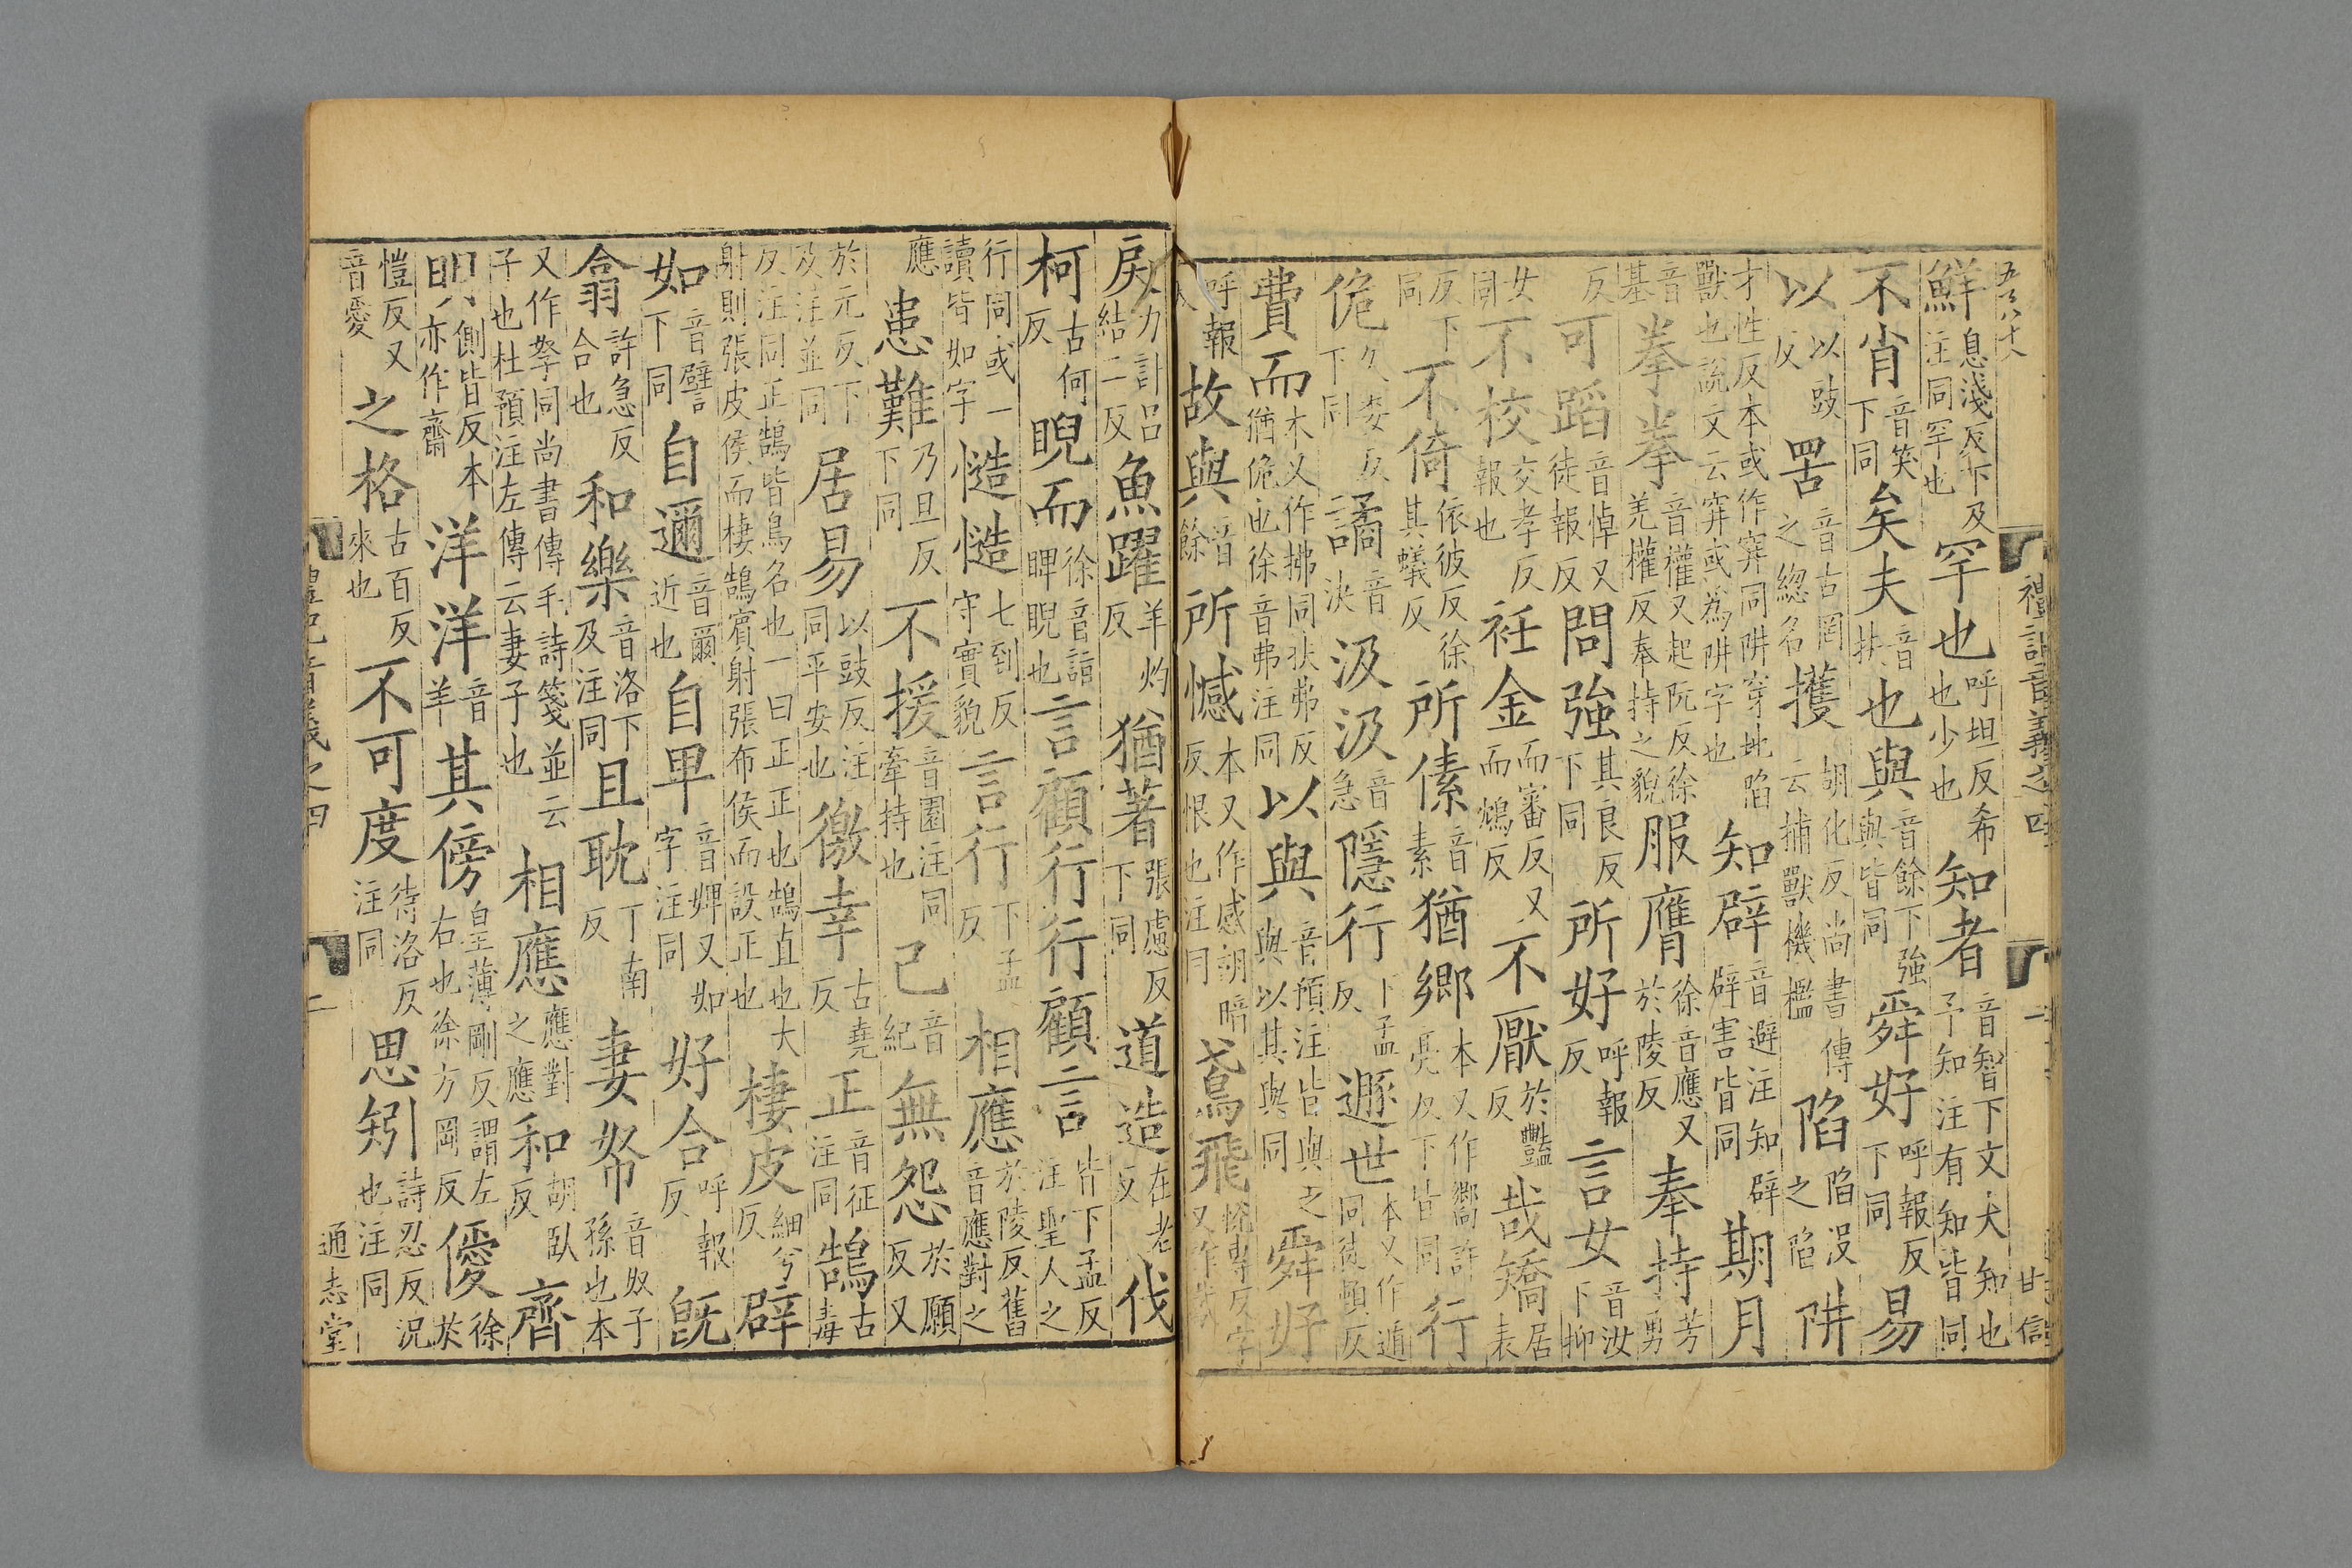 鮮息淺反下及注同罕也罕也呼坦反希也少也知者音智下文大知也予知注有知皆同
不肖音笑下同矣夫音扶也與音餘下強與皆同舜好呼報反下同易
以以豉反罟音古罔之緫名擭胡化反尚書傳云捕獸機檻陷陷没之陷阱
才性反本或作穽同阱穿地陷獸也說文云穽或為阱字也知辟音避注知辟辟害皆同期月
音基拳拳音權又起阮反徐羌權反奉持之貌服膺徐音應又於陵反奉持芳勇
反可蹈音悼又徒報反問強其良反下同所好呼報反言女音汝下抑
女同不校交孝反報也衽金而審反又而鴆反不厭於豔反哉矯居表
反下同不倚依彼反徐其蟻反所傃音素猶鄉本又作嚮許亮反下皆同行
佹久委反下同譎音決汲汲音急隱行下孟反遯世本又作遁同徒頓反
費而本又作拂同扶弗反猶佹也徐音弗注同以與音預注皆與之與以其與同舜好
呼報反故與音餘所憾本又作感胡暗反恨也注同鳶飛悦專反字又作䳒
戾力計吕結二反魚躍羊灼反猶著張慮反下同道造在老反伐
柯古何反睨而徐音詣睥睨也言顧行行顧言皆下孟反注聖人之
行同或一讀皆如字慥慥七到反守實貌言行下孟反相應於陵反舊音應對之
應患難乃旦反下同不援音園注同牽持也己音紀無怨於願反又
於元反下及注並同居易以豉反注同平安也徼幸古堯反正音征注同鵠古毒
反注同正鵠皆鳥名也一曰正正也鵠直也大射則張皮侯而棲鵠賓射張布侯而設正也棲皮細兮反辟
如音譬下同自邇音爾近也自卑音婢又如字注同好合呼報反旣
翕許急反合也和樂音洛下及注同且耽丁南反妻帑音奴子孫也本
又作孥同尚書傳毛詩箋並云子也杜預注左傳云妻子也相應應對之應和胡臥反齊
明側皆反本亦作齋洋洋音羊其傍皇薄剛反謂左右也徐方岡反僾徐於
愷反又音愛之格古百反來也不可度待洛反注同思矧詩忍反況也注同
通志堂